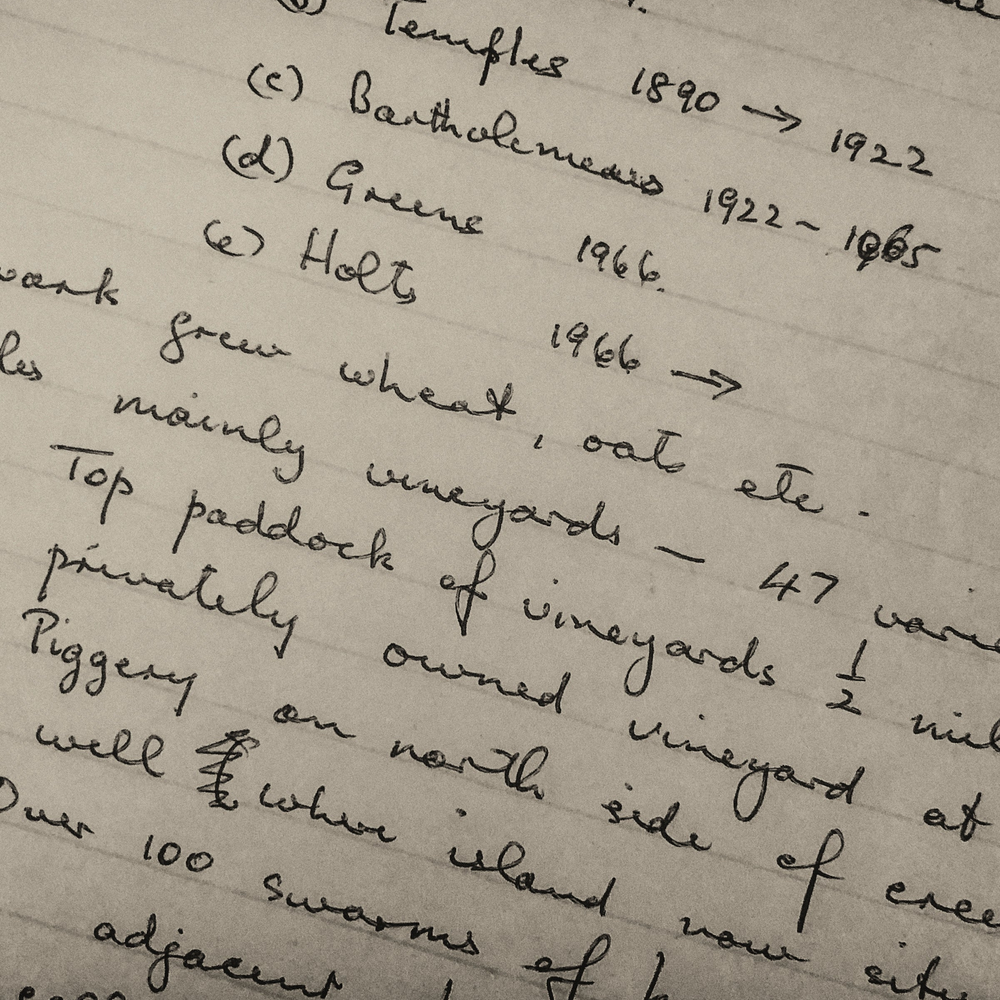 (b) Temples 1890 → 1922
(c) Bartholemews 1922 ~ 1965
(d) Greens 1966.
(e) Holts 1966 →
wark grew wheat, oats etc.
les mainly vineyards — 47 varie
Top paddock of vineyards ½ mil
privately owned vineyard at
Piggery on north side of cree
well where island now situ
Over 100 swarms of
adjacent